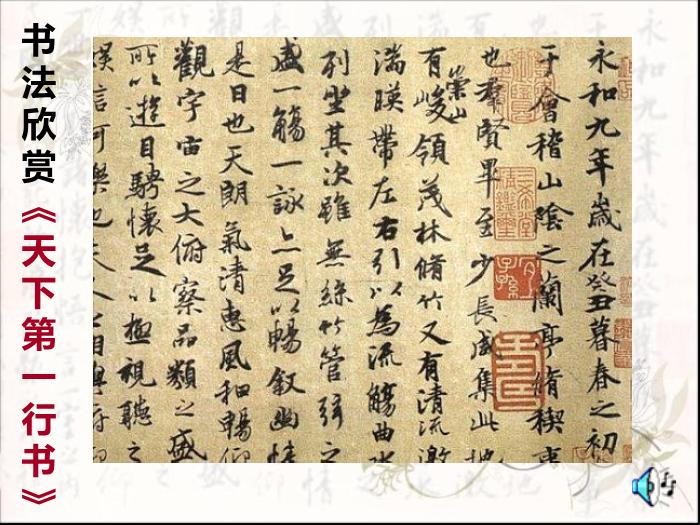 书法欣赏《天下第一行书》
永和九年歲在癸丑暮春之初
于會稽山陰之蘭亭脩稧事
也羣賢畢至少長咸集此地
有崇山峻領茂林脩竹又有清流激
湍暎帶左右引以為流觴曲水
列坐其次雖無絲竹管弦之
盛一觴一詠亦足以暢叙幽情
是日也天朗氣清惠風和暢仰
觀宇宙之大俯察品類之盛
所以遊目騁懷足以極視聽之
娛信可樂也夫人之相與俯仰
三希堂精鑑璽
宜子孫